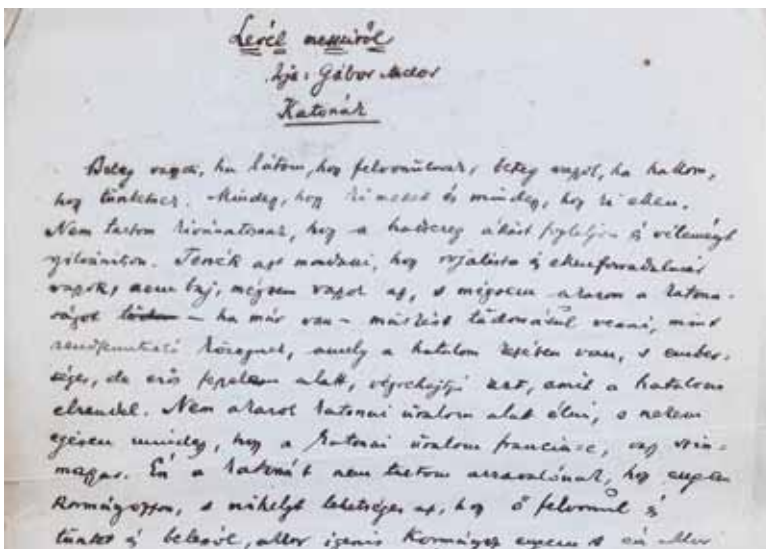 Levél messziről
Írja: Gábor Andor
Katonák
Beteg vagyok, ha látom, hogy felvonulnak, beteg vagyok, ha hallom,
hogy tüntetnek. Mindegy, hogy ki mellett és mindegy, hogy ki ellen.
Nem tartom kivánatosnak, hogy a hadsereg állást foglaljon és véleményt
nyilvánitson. Tessék azt mondani, hogy szocialista és ellenforradalmár
vagyok, nem baj, mégsem vagyok az, s mégsem akarom a katona-
ságot – ha már van – másként tudomásul venni, mint
rendfenntartó közeget, amely a hatalom kezében van, s ember-
séges, de erős fegyelem alatt, végrehajtja azt, amit a hatalom
elrendel. Nem akarok katonai uralom alatt élni, s nekem
egészen mindegy, hogy a katonai uralom francia-e, vagy
magyar. Én a katonát nem tartom arravalónak, hogy engem
kormányozzon, s mihelyt lehetséges az, hogy ő felvonul és
tüntet és beleszól, akkor igenis kormányoz engem s én akkor